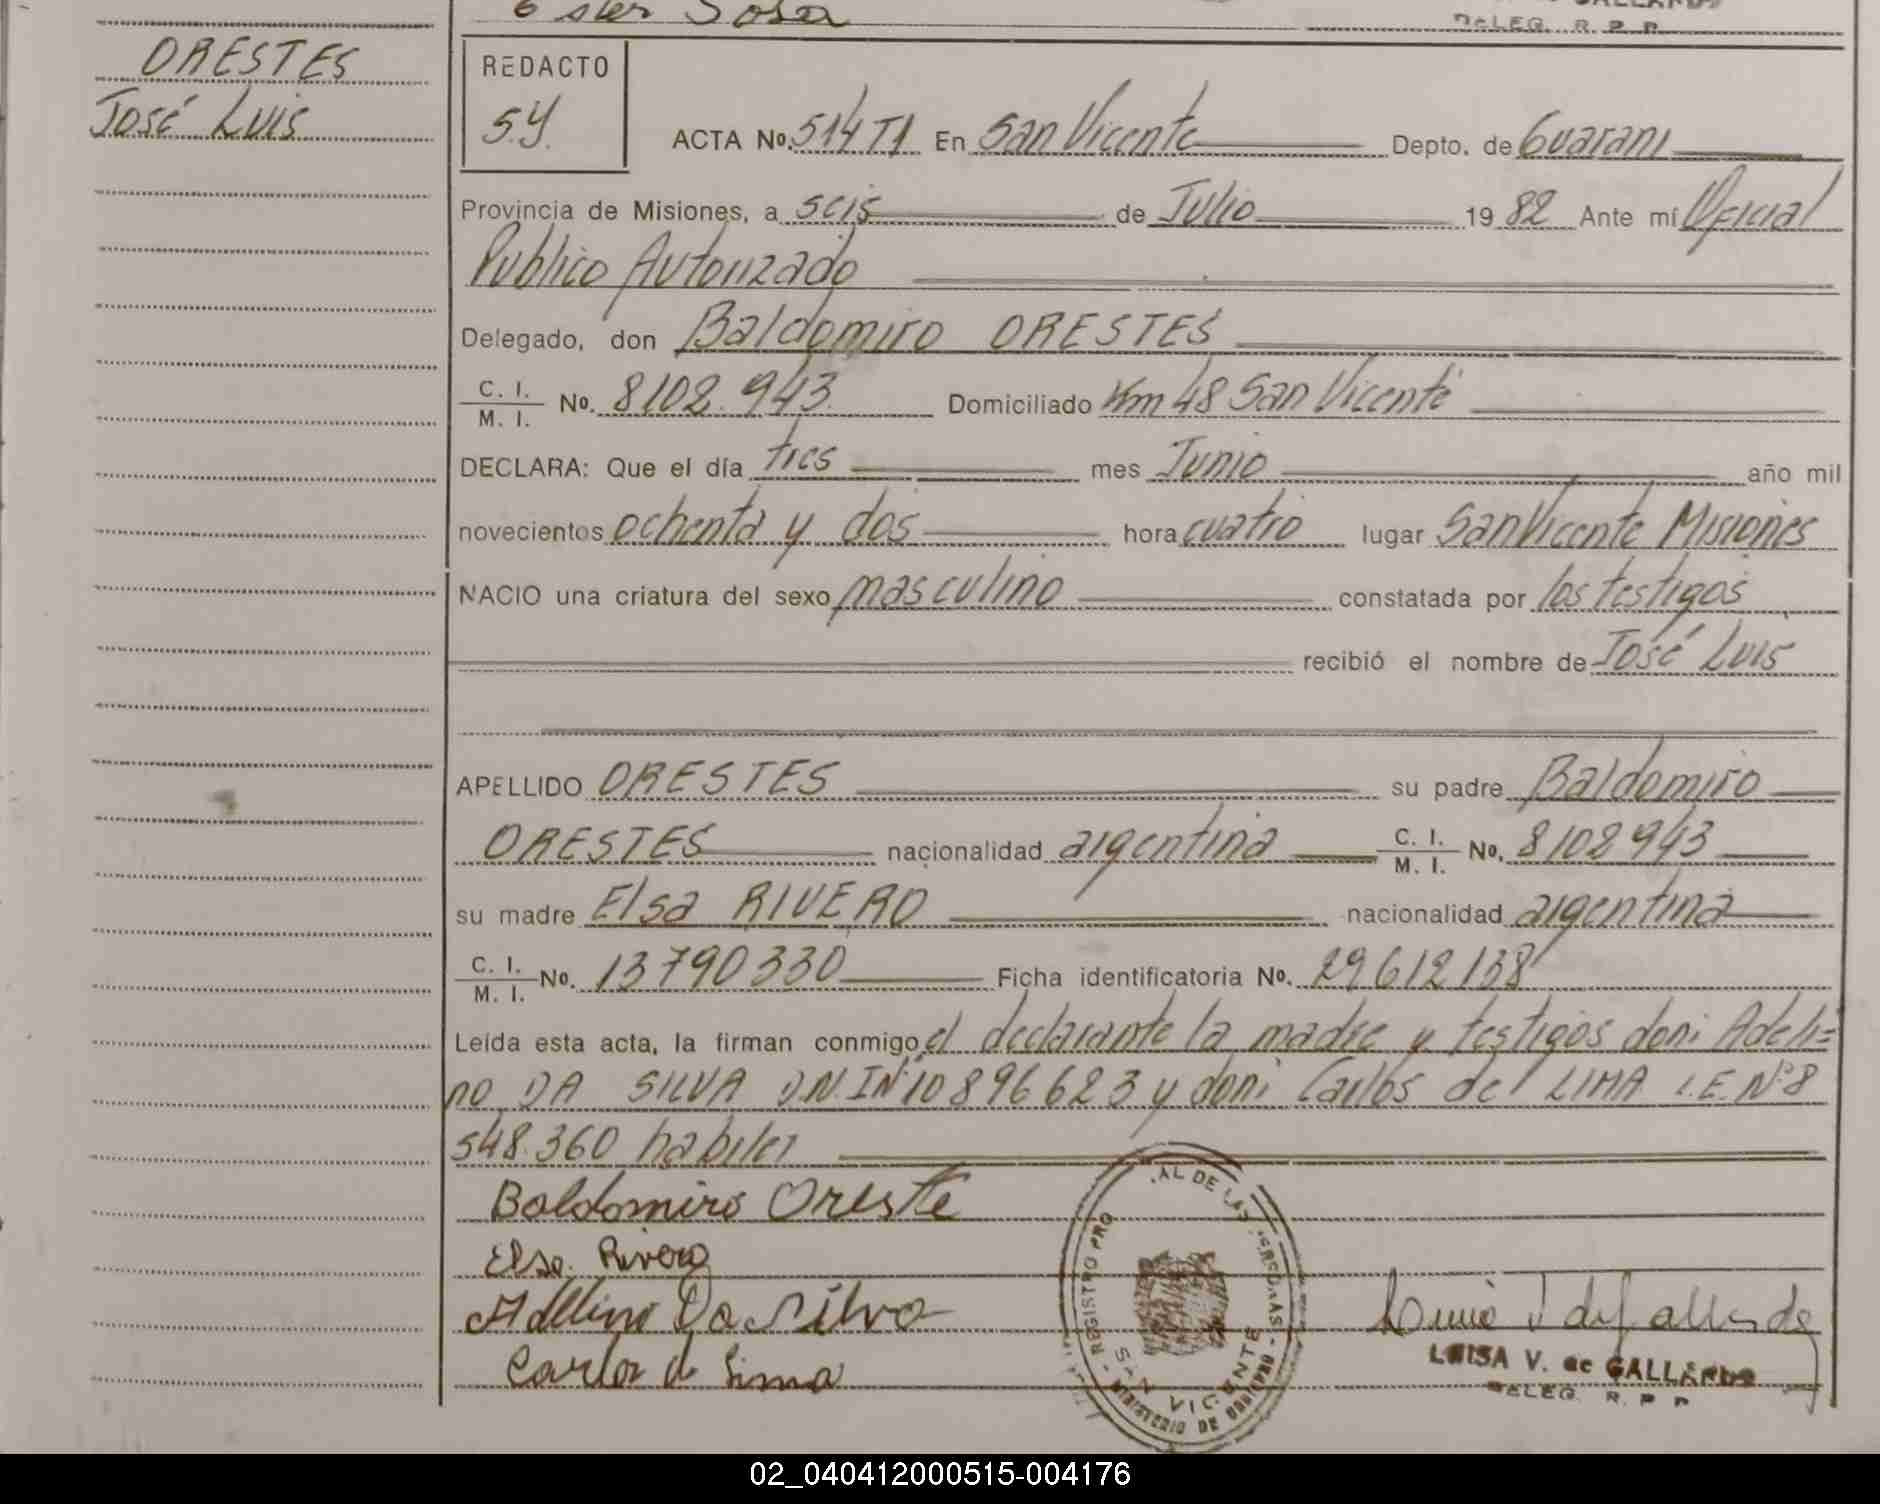 Sosa
DELEG. R. P. P.
ORESTES
José Luis
REDACTO
S.Y.
ACTA No. 514 T1 En San Vicente Depto. de Guarani
Provincia de Misiones, a seis de Julio 1982 Ante mí Oficial
Publico Autorizado
Delegado, don Baldomiro ORESTES
C. I. / M. I. No. 8102.943 Domiciliado Km 48 San Vicente
DECLARA: Que el día tres mes Junio año mil
novecientos ochenta y dos hora cuatro lugar San Vicente Misiones
NACIO una criatura del sexo masculino constatada por los testigos
recibió el nombre de José Luis
APELLIDO ORESTES su padre Baldomiro
ORESTES nacionalidad argentina C. I. / M. I. No. 8102943
su madre Elsa RIVERO nacionalidad argentina
C. I. / M. I. No. 13790330 Ficha identificatoria No. 29612138
Leída esta acta, la firman conmigo el declarante la madre y testigos don: Adeli=
no DA SILVA D.N.I Nº 10896623 y don: Carlos de LIMA L.E. Nº 8
548.360 habiles
Baldomiro Oreste
Elsa Rivero
Adelino Da Silva
Carlos de Lima
REGISTRO PRO AL DE LAS
SAN VICENTE
MINISTERIO DE GOBIERNO
LUISA V. de GALLARDO
DELEG. R. P. P
02_040412000515-004176